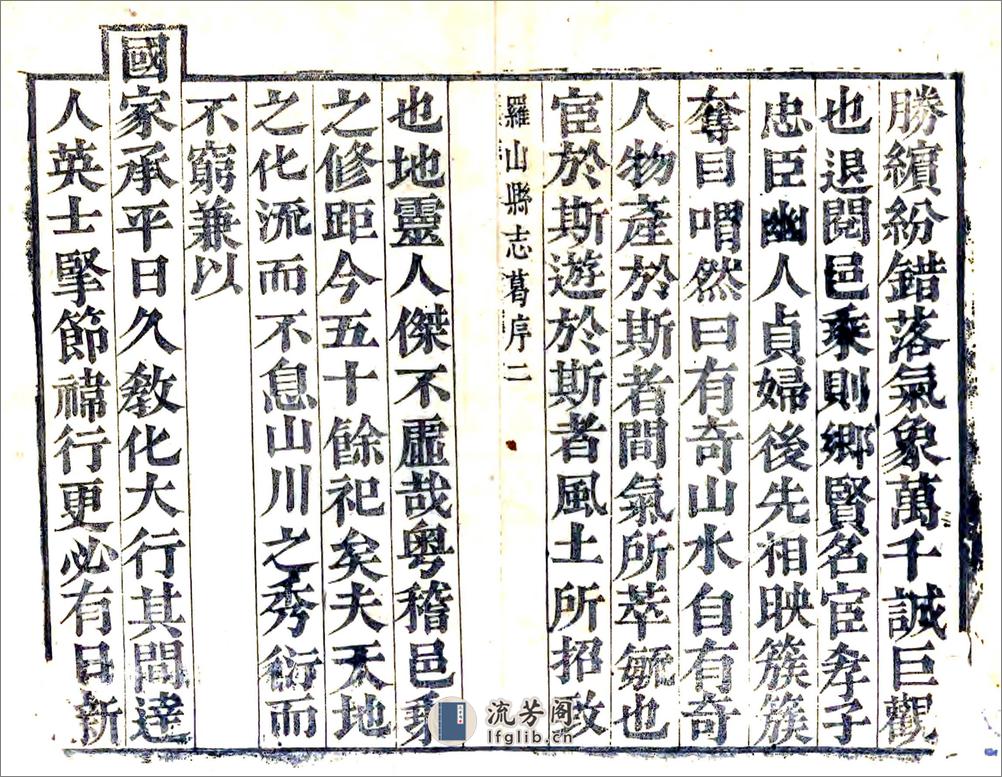 勝繽紛錯落氣象萬千誠巨觀
也退閱邑乘則鄉賢名宦孝子
忠臣幽人貞婦後先相映簇簇
奪目喟然曰有奇山水自有奇
人物產於斯者間氣所萃毓也
宦於斯遊於斯者風土所招致
羅山縣志葛序二
也地靈人傑不虛哉粤稽邑乘
之修距今五十餘祀矣夫天地
之化流而不息山川之秀衍而
不窮兼以
國家承平日久敎化大行其間達
人英士挐節禕行更必有日新
流芳阁
lfglib.cn